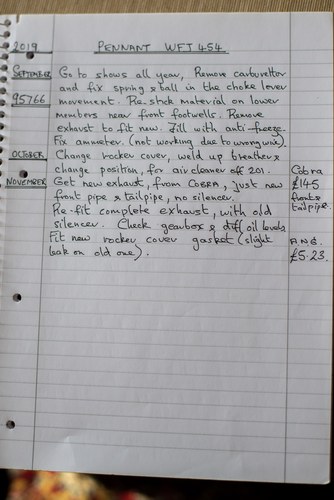 2019 PENNANT WFT 454
SEPTEMBER Go to shows all year, Remove carburettor
and fix spring & ball in the choke lever
95766 movement. Re-stick material on lower
members near front footwells. Remove
exhaust to fit new. Fill with anti-freeze.
Fix ammeter. (not working due to wrong wire).
OCTOBER Change rocker cover, weld up breather &
change position, for air cleaner off 201.
NOVEMBER Get new exhaust, from COBRA, just new
front pipe & tailpipe, no silencer.
Re-fit complete exhaust, with old
silencer. Check gearbox & diff oil levels
Fit new rocker cover gasket (slight
leak on old one).
Cobra
£145
front &
tailpipe.
£5.23.